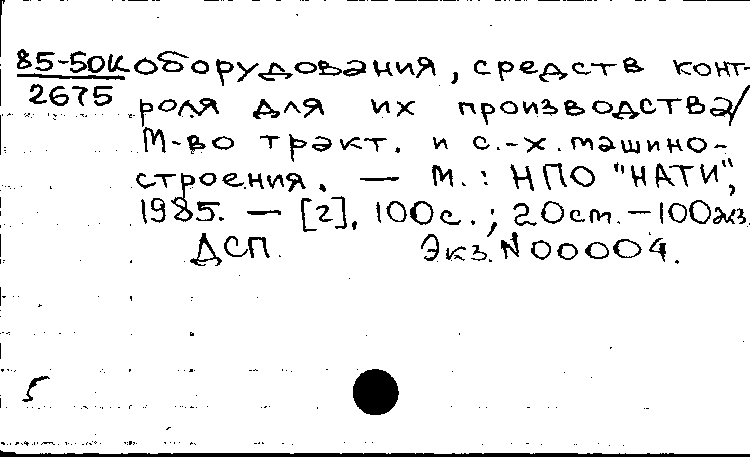 85-50к оборудования, средств конт-
2675 роля для их производства/
М-во тракт. и с.-х. машино-
строения. — М.: НПО "НАТИ",
1985. — [2], 100с.; 20см. — 100экз.
ДСП. Экз. N 00004.
5